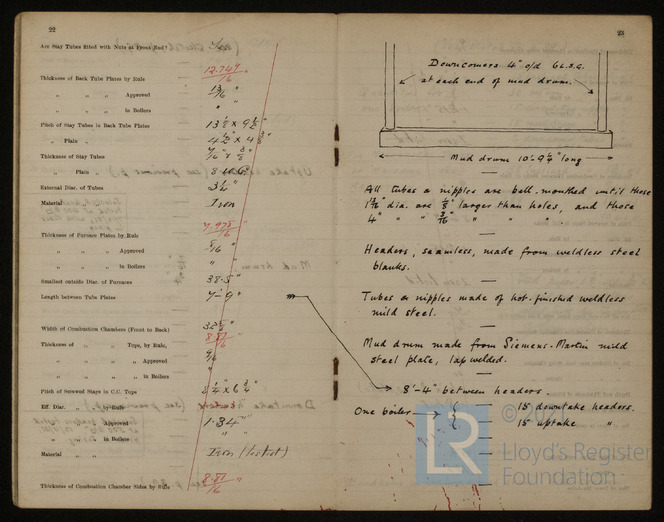 22
Are Stay Tubes fitted with Nuts at Front End?
Thickness of Back Tube Plates by Rule 12.749/16 "
" " " Approved 13/16 "
" " " in Boilers " "
Pitch of Stay Tubes in Back Tube Plates 13 1/8 × 9 1/2 "
" Plain "
Thickness of Stay Tubes
" Plain "
External Diar. of Tubes 3 1/4 "
Material " Iron
Thickness of Furnace Plates by Rule 7.975/16 "
" " " Approved 5/16 "
" " " in Boilers " "
Smallest outside Diar. of Furnaces 38.5 "
Length between Tube Plates 7'-9"
Width of Combustion Chambers (Front to Back)
Thickness of " " Tops, by Rule,
" " " " Approved 9/16
" " " " in Boilers "
Pitch of Screwed Stays in C.C. Tops
Eff. Diar. " by Rule
" " Approved 1.34 "
" " in Boilers " "
Material " Iron (tested)
Thickness of Combustion Chamber Sides by Rule 8.81/16 "
23
Downcomers 4" o/d 6 L.S.G.
at each end of mud drum.
Mud drum 10'-9 1/4" long
All tubes & nipples are bell-mouthed until those
1 13/16" dia. are 1/8" larger than holes, and those
4" " 3/16" " " " .
Headers, seamless, made from weldless steel
blanks.
Tubes & nipples made of hot-finished weldless
mild steel.
Mud drum made from Siemens-Martin mild
steel plate, lap welded.
8'-4" between headers
One boiler 15 downtake headers.
15 uptake "
LR
Lloyd's Register
Foundation